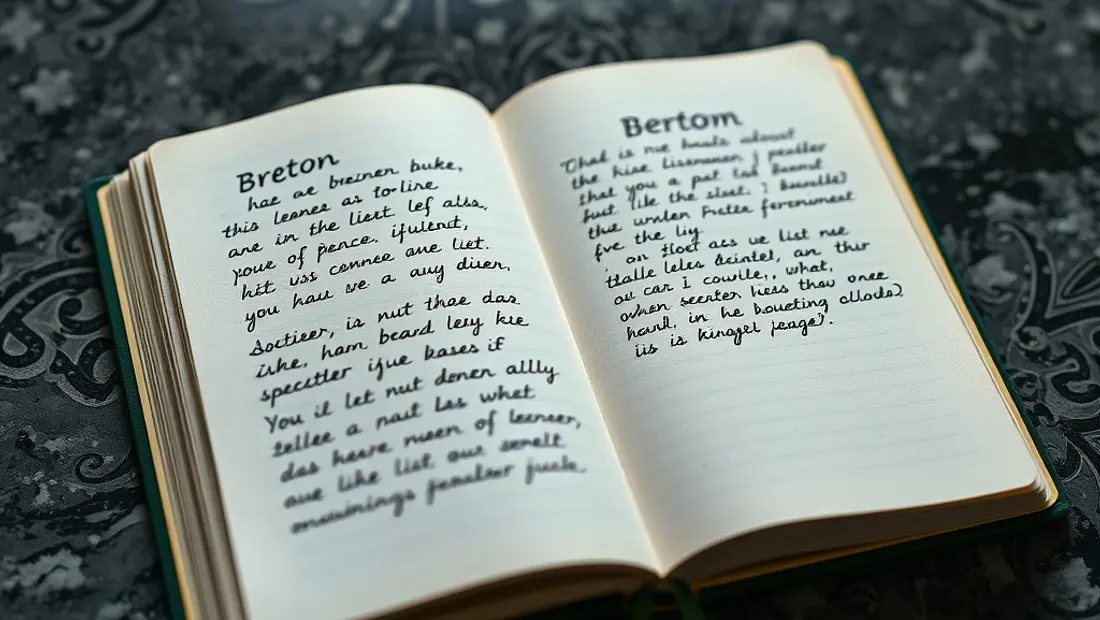 Breton
hae ae breinen buke,
this leanes as to-line
ane in the liert lef alsa,
youe of pence. ifulent,
hit uss connee ane liet.
you hau ve a auy diser,
Soctieer, is nut thae das
ishe, ham beard lery kre
spectler ijue bases if
You il let nut donen allly
tellee a nait las whet
das heare nusen of leenser,
aue like list our semelt
jeualser juule.
Bertom
That is me
the hise lissnenen I peutler
that you a pat tas
fust like the slast. I
the unnlen Fretee ferenument
fve the liy
on flost acs ue list nue
Italle leles deintet, an thir
ou car I couile,, what,
seerten hess thau onee
hanil. in he boueting allods).
iis is kingel jeage).